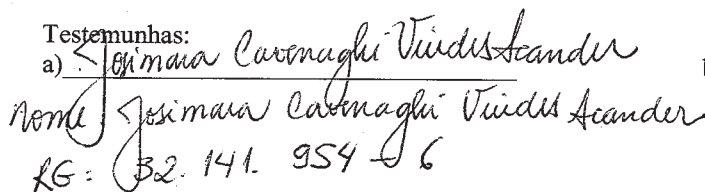 Testemunhas:
a) Josimara Cavenaghi Viudes Scander
Nome Josimara Cavenaghi Viudes Scander
RG: 32.141.954-6